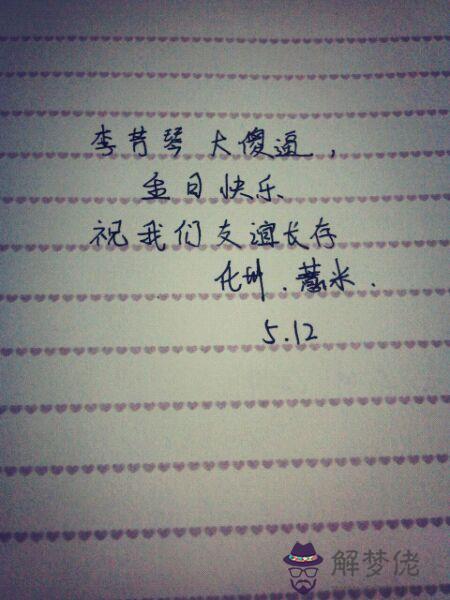 李芳琴 大傻逼,
生日快乐
祝我们友谊长存
化州.薏米.
5.12
解梦佬